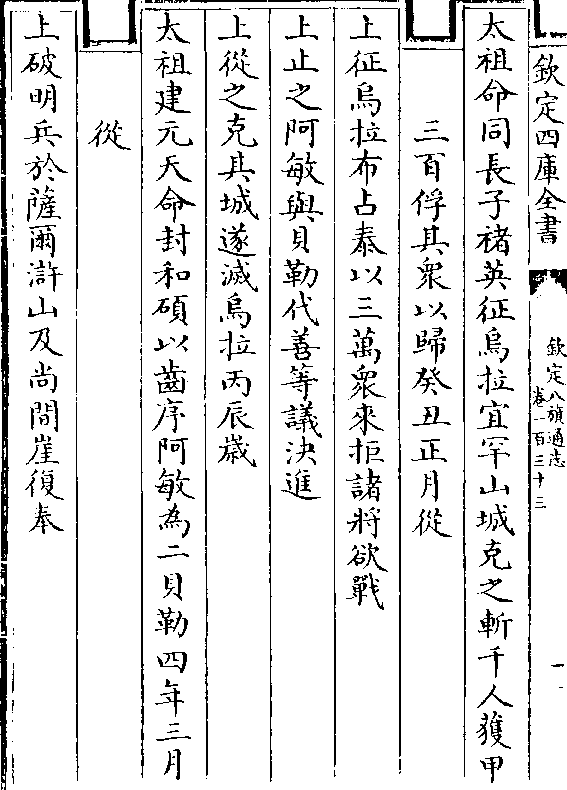 欽定四庫全書
欽定八旗通志
卷一百三十三
一
太祖命同長子褚英征烏拉宜罕山城克之斬千人獲甲
三百俘其衆以歸癸丑正月從
上征烏拉布占泰以三萬衆來拒諸將欲戰
上止之阿敏與貝勒代善等議決進
上從之克其城遂滅烏拉丙辰歲
太祖建元天命封和碩以齒序阿敏為二貝勒四年三月
從
上破明兵於薩爾滸山及尚間崖復奉